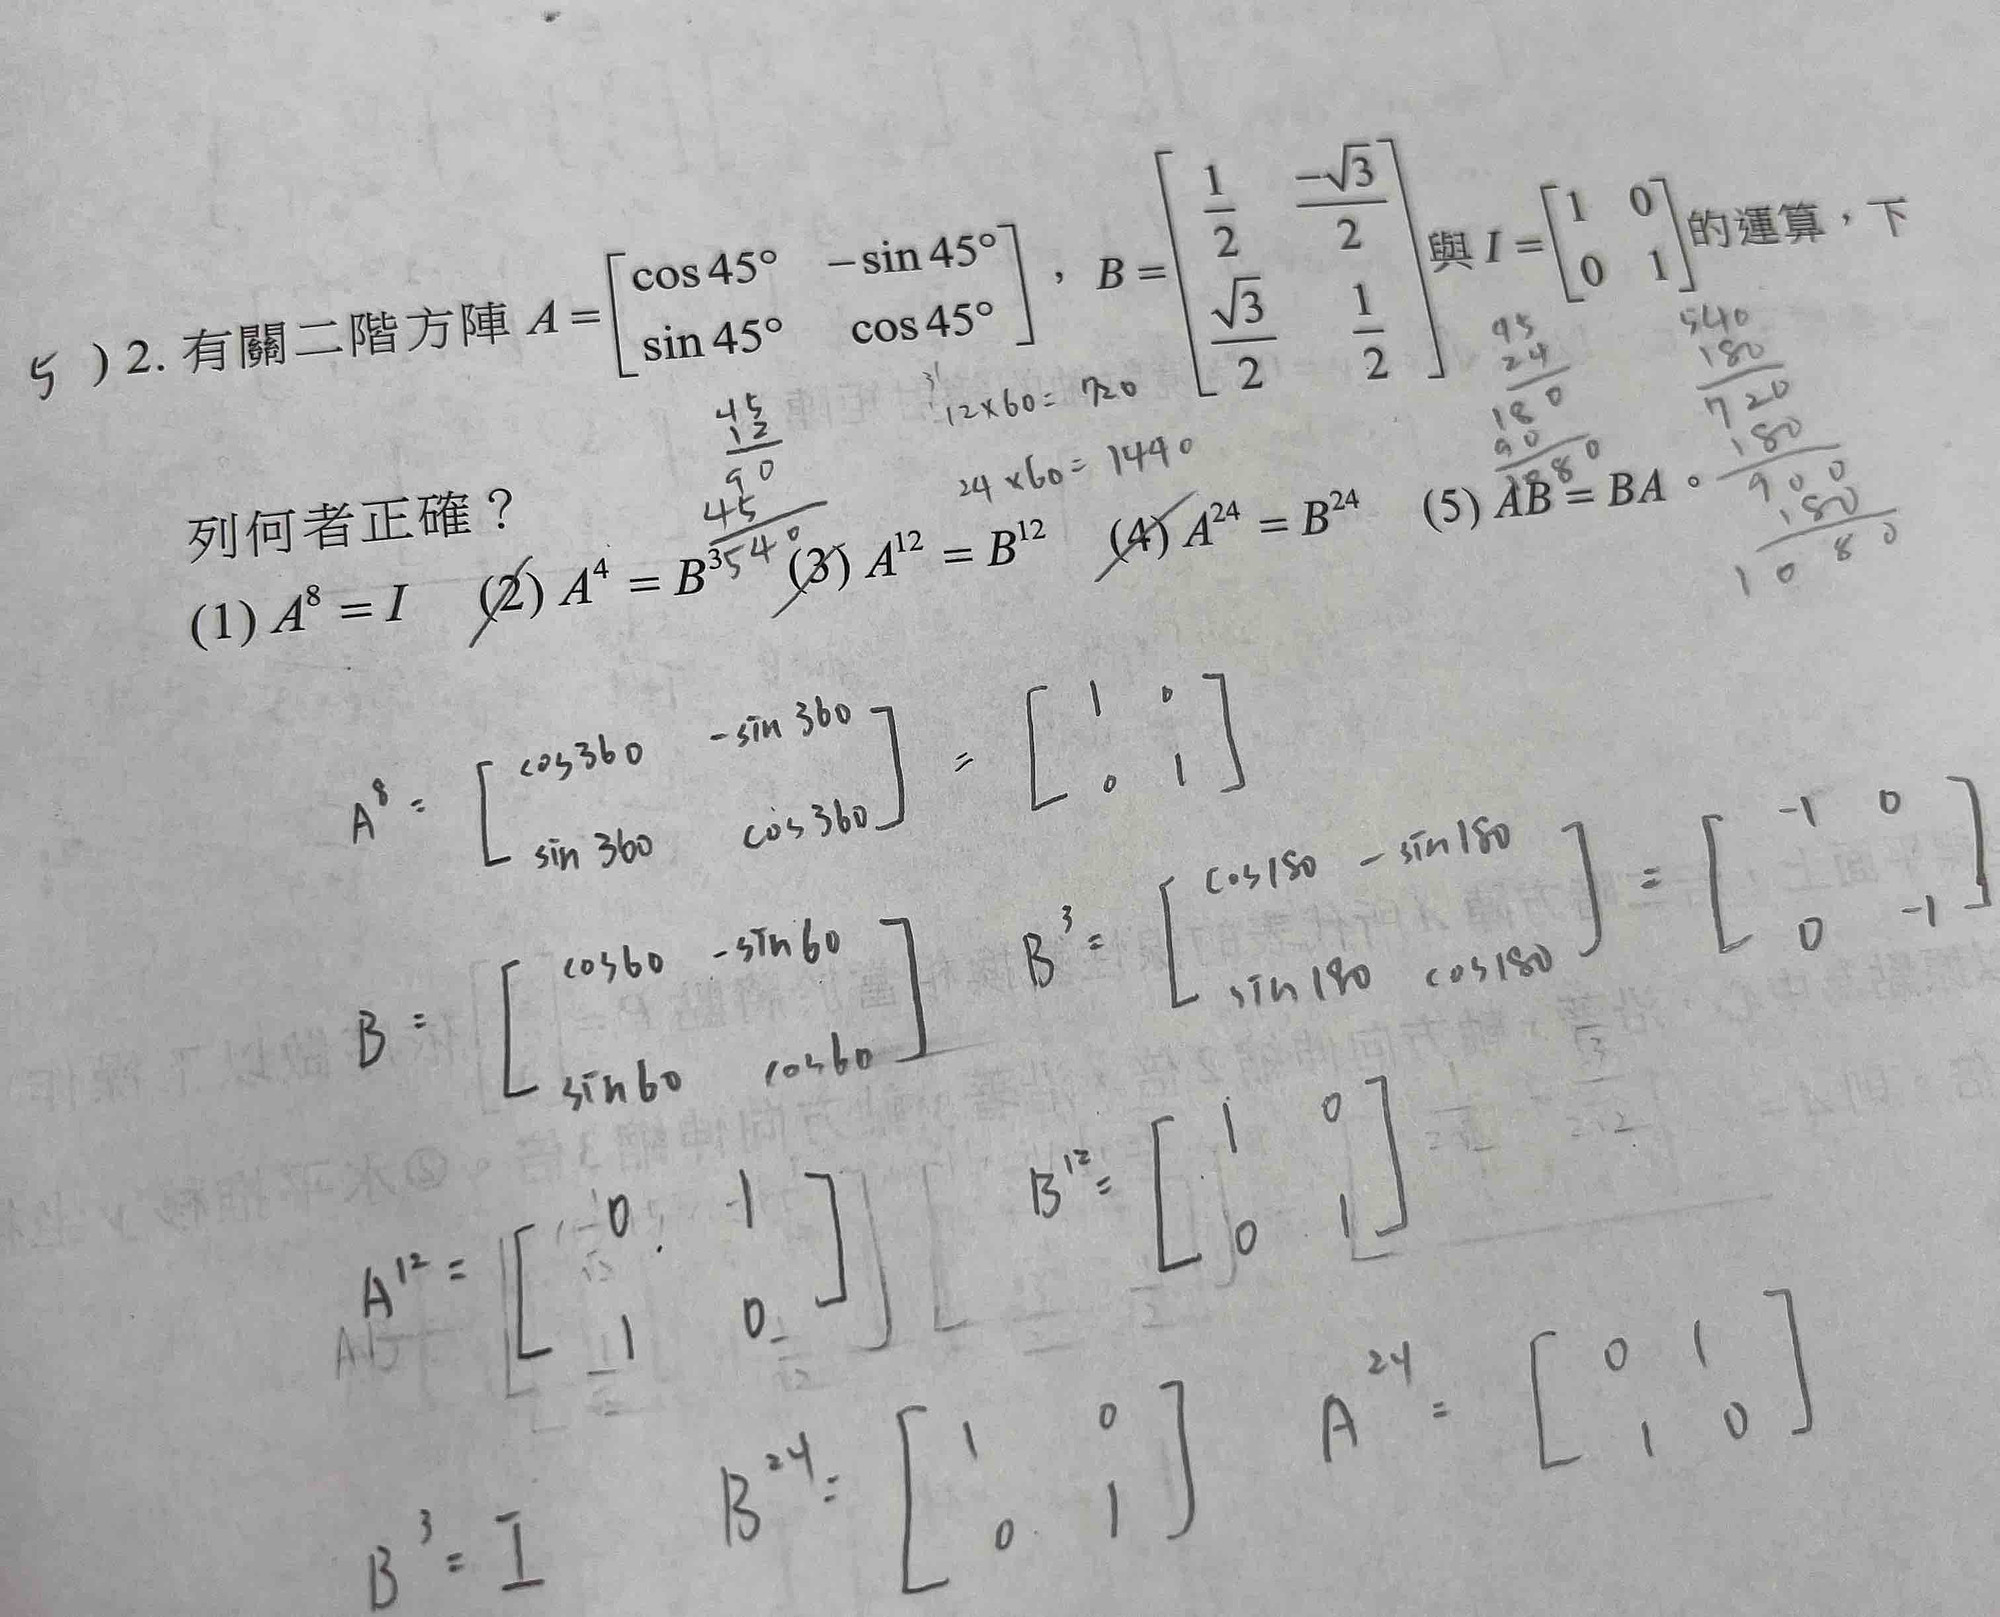 5 ) 2. 有關二階方陣 A = [cos 45° −sin 45° ; sin 45° cos 45°] , B = [1/2 −√3/2 ; √3/2 1/2] 與 I = [1 0 ; 0 1] 的運算，下
列何者正確？
(1) A⁸ = I (2) A⁴ = B³ (3) A¹² = B¹² (4) A²⁴ = B²⁴ (5) AB = BA。
45
12
90
45
540
12×60= 720
24×60= 1440
24
180
90
540
180
720
180
900
180
1080
A⁸ = [cos360 -sin360 ; sin360 cos360] = [1 0 ; 0 1]
B = [cos60 -sin60 ; sin60 cos60]
B³ = [cos180 -sin180 ; sin180 cos180] = [-1 0 ; 0 -1]
A¹² = [0 -1 ; 1 0]
B¹² = [1 0 ; 0 1]
B³ = I
B²⁴ = [1 0 ; 0 1]
A²⁴ = [0 1 ; 1 0]